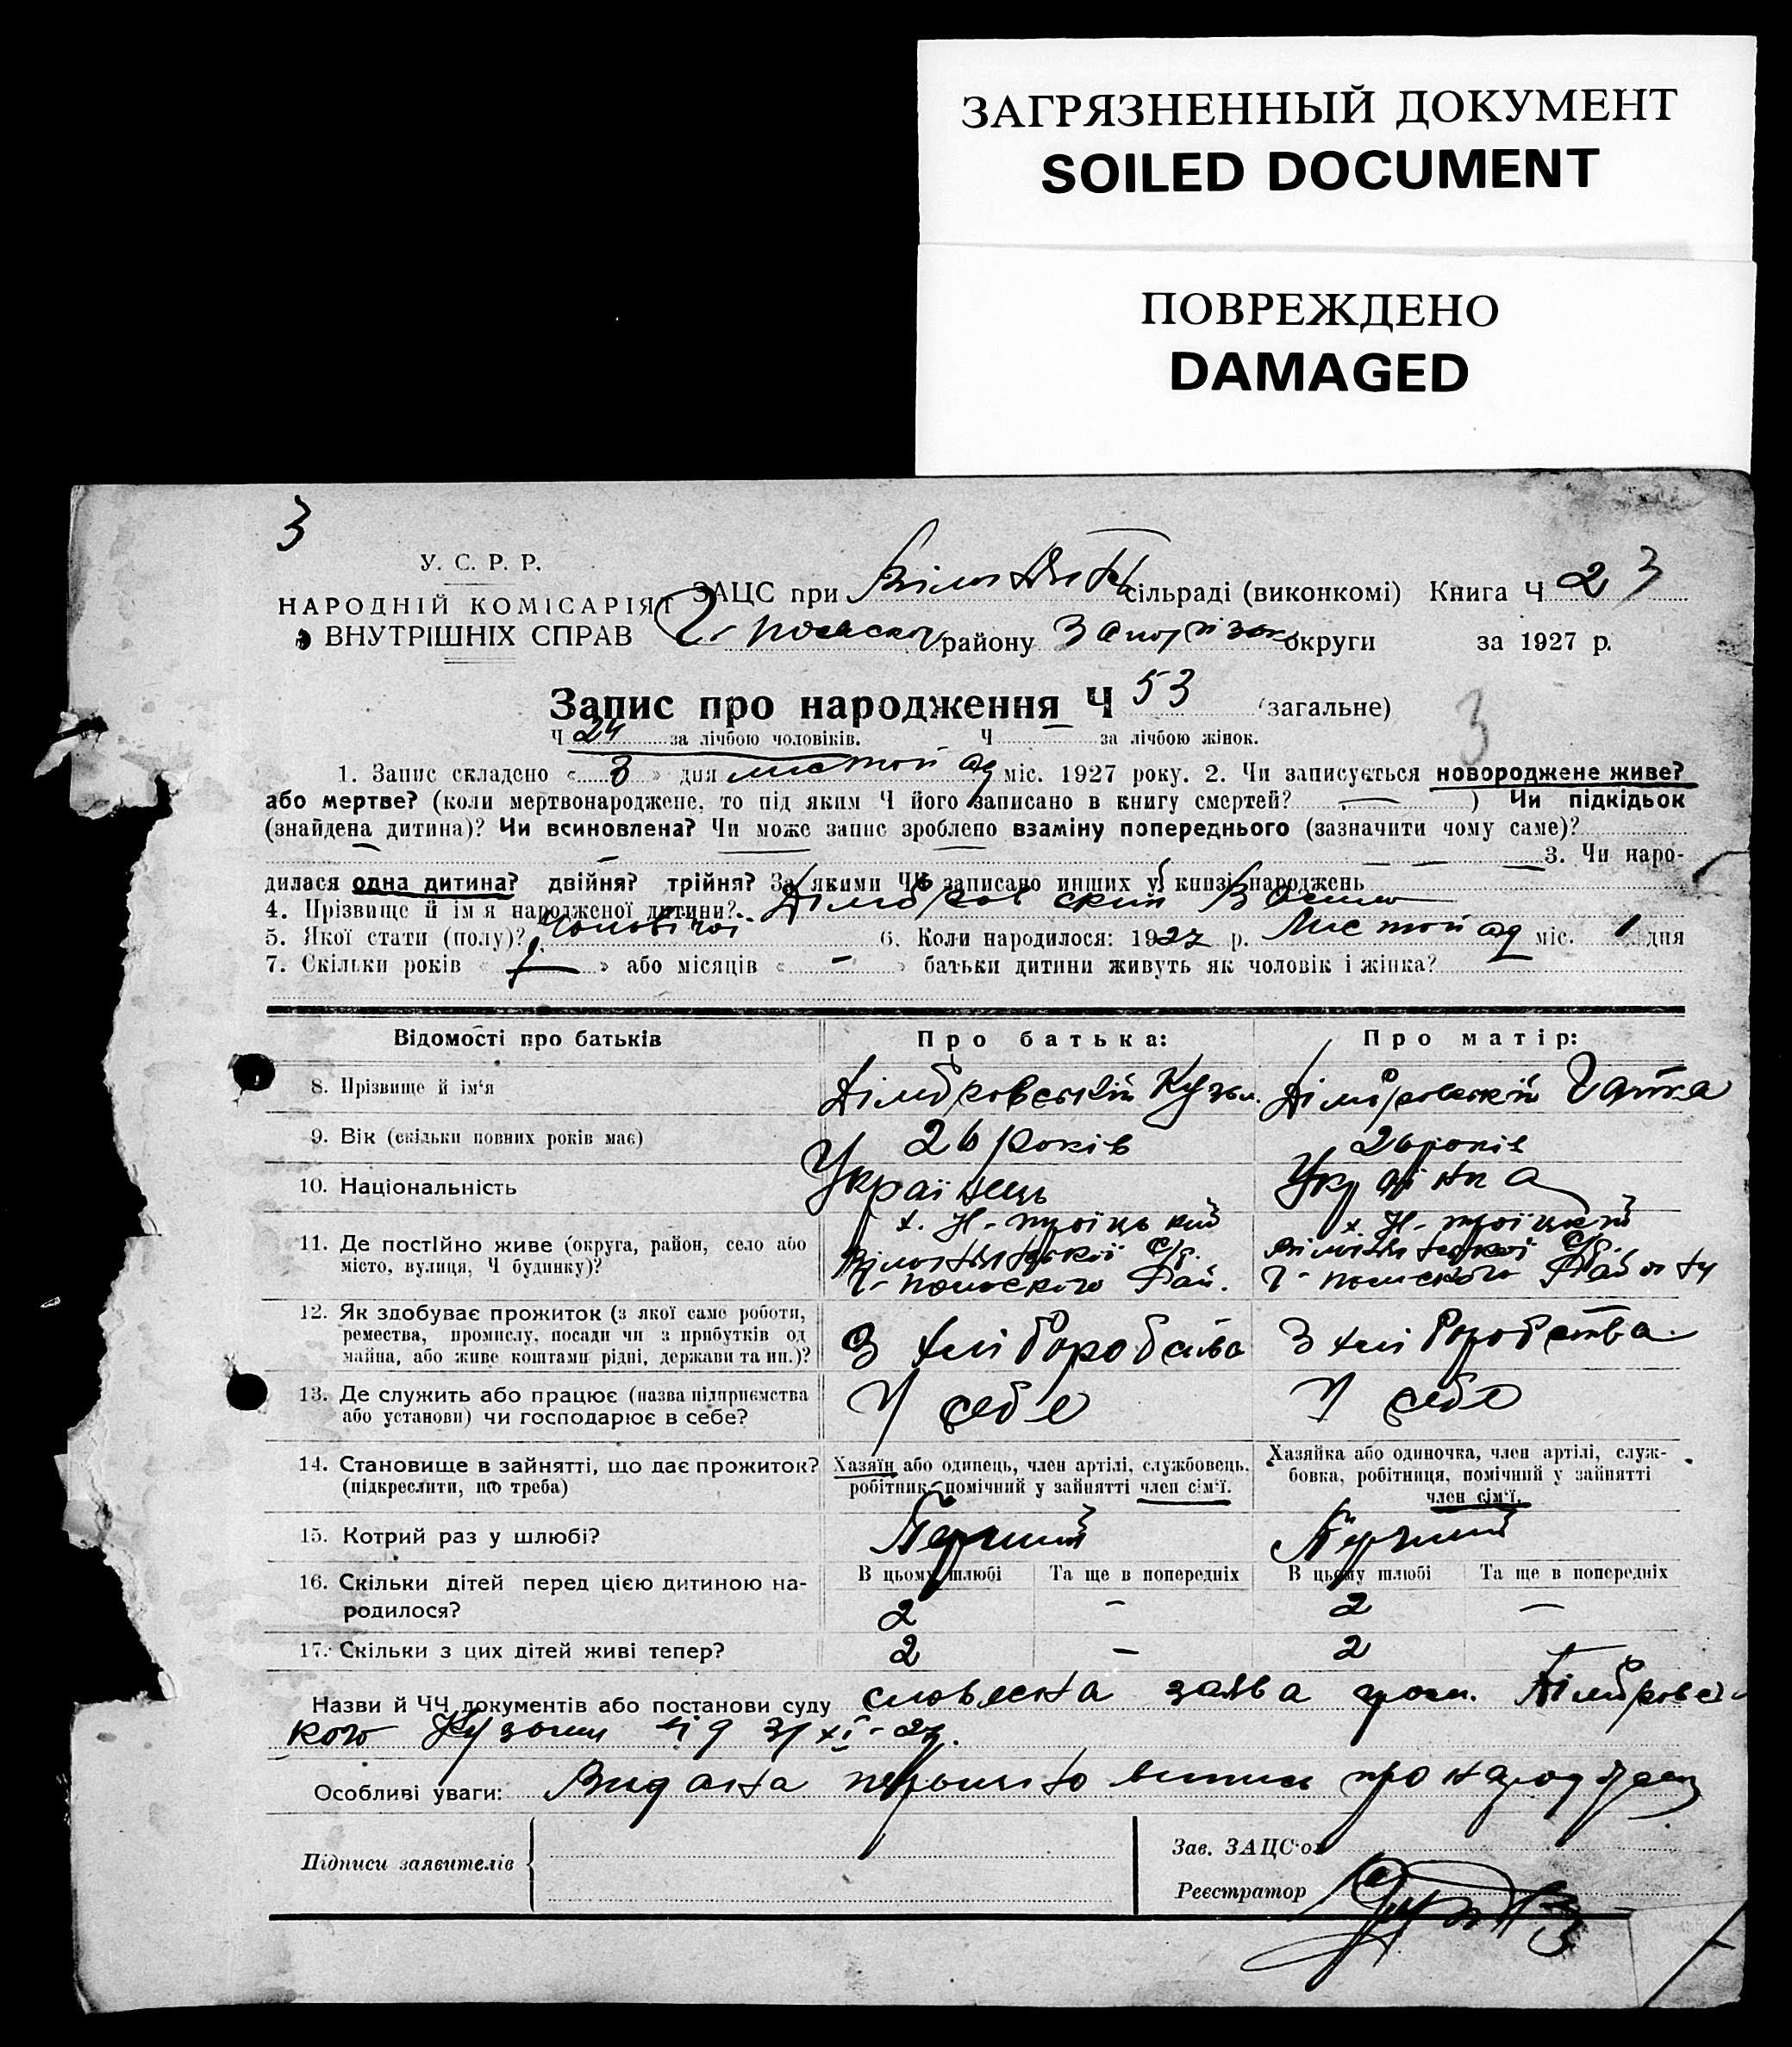 ЗАГРЯЗНЕННЫЙ ДОКУМЕНТ
SOILED DOCUMENT
ПОВРЕЖДЕНО
DAMAGED
3
У. С. Р. Р.
НАРОДНІЙ КОМІСАРІЯТ
ВНУТРІШНІХ СПРАВ
ЗАЦС при сільраді (виконкомі) Книга Ч 2 3
району округи за 1927 р.
Запис про народження Ч 53 (загальне)
Ч 24 за лічбою чоловіків. Ч — за лічбою жінок.
3
1. Запис складено « 3 » дня листопад міс. 1927 року. 2. Чи записується новороджене живе?
або мертве? (коли мертвонароджене, то під яким Ч його записано в книгу смертей? — ) Чи підкідьок
(знайдена дитина)? Чи всиновлена? Чи може запис зроблено взаміну попереднього (зазначити чому саме)?
3. Чи наро-
дилася одна дитина? двійня? трійня? За якими ЧЧ записано инших у книзі народжень
4. Прізвище й ім'я народженої дитини?
5. Якої стати (полу)? Чоловічої 6. Коли народилося: 1927 р. Листопад міс. 1 дня
7. Скільки років « » або місяців « — » батьки дитини живуть як чоловік і жінка?
Відомості про батьків Про батька: Про матір:
8. Прізвище й ім'я
9. Вік (скільки повних років має) 26 років 26 років
10. Національність Українець Українка
11. Де постійно живе (округа, район, село або
місто, вулиця, Ч будинку)?
х. Н-троіцький
х. Н-троіцький
12. Як здобуває прожиток (з якої саме роботи,
ремества, промислу, посади чи з прибутків од
майна, або живе коштами рідні, держави та ин.)?
З хліборобства З хліборобства
13. Де служить або працює (назва підприємства
або установи) чи господарює в себе?
У себе У себе
14. Становище в зайнятті, що дає прожиток?
(підкреслити, що треба)
Хазяїн або одинець, член артілі, службовець,
робітник, помічний у зайнятті член сім'ї.
Хазяйка або одиночка, член артілі, служ-
бовка, робітниця, помічний у зайнятті
член сім'ї.
15. Котрий раз у шлюбі? Перший Перший
16. Скільки дітей перед цією дитиною на-
родилося?
В цьому шлюбі Та ще в попередніх В цьому шлюбі Та ще в попередніх
2 — 2 —
17. Скільки з цих дітей живі тепер? 2 — 2
Назви й ЧЧ документів або постанови суду словесна заява гром.
Особливі уваги: Видана випись про народжен
Підписи заявителів
Зав. ЗАЦС'ом
Реєстратор